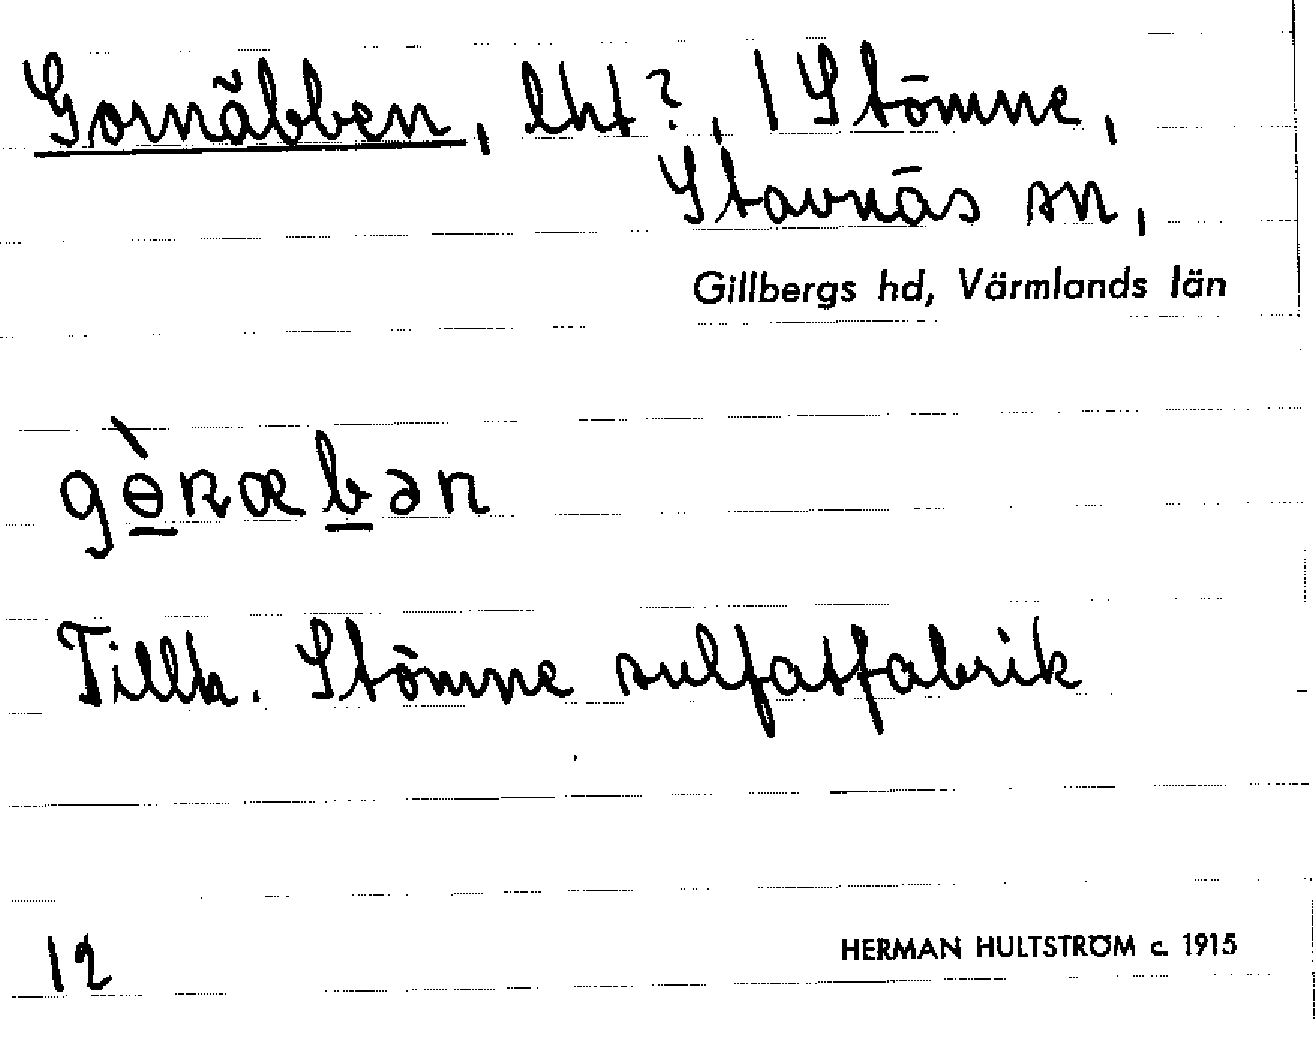 Gornäbben, lht?, 1 Stömne,
Stavnäs sn,
Gillbergs hd, Värmlands län
gɵ̀næbən
Tillh. Stömne sulfatfabrik
12
HERMAN HULTSTRÖM c. 1915